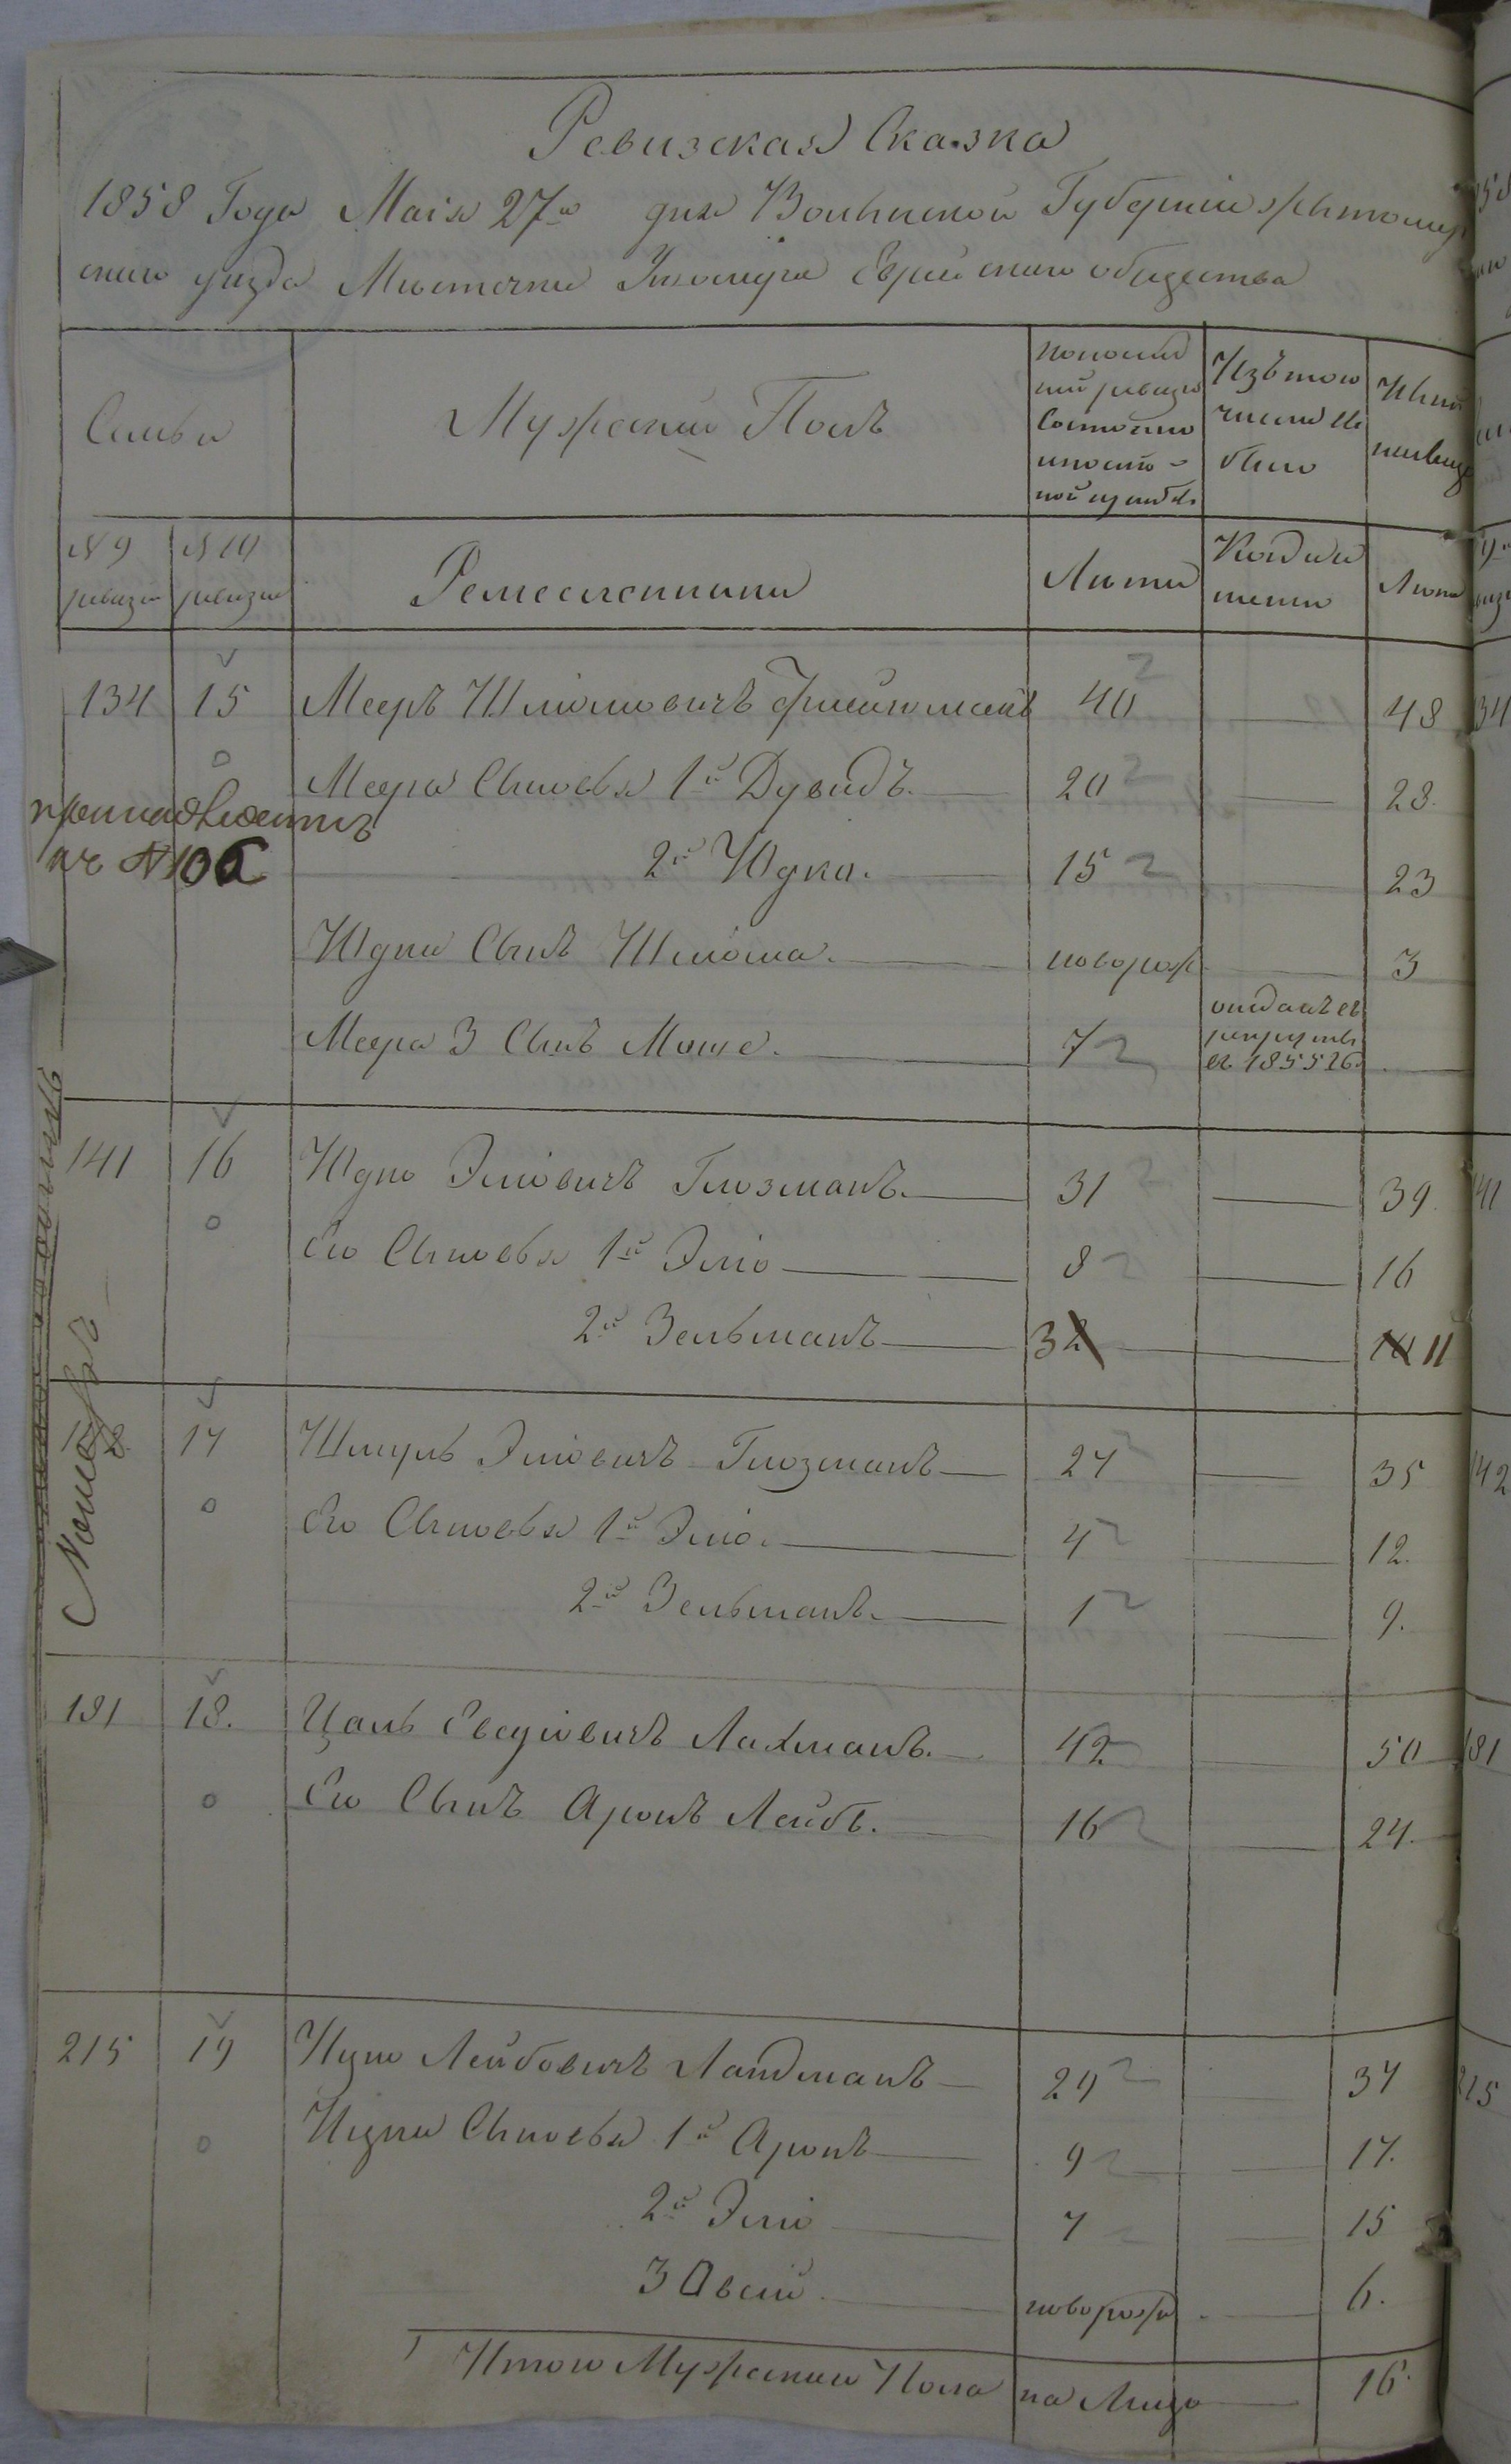 Ревизская Сказка
1858 Года Маія 27го дня Волынской Губерніи Житомир
скаго уѣзда Мѣстечка Еврейскаго общества
Семьи
Мужескій Полъ
по послѣд
ней ревизіи
Состояло
и послѣ
Изъ того
числа вы
было
Нынѣ
на лицо
№ 9 ревизіи
№ 10 ревизіи
Ремесленники
Лѣта
Когда и
имянно
Лѣта
134 15 Мееръ Шліомовичъ 40 — 48
Меера Сыновья 1й Дувидъ. 20 — 28.
принадлежитъ
къ № 106
2й Юдка. 15 — 23
Юдки Сынъ Шліома. новорож — 3
Меера 3 Сынъ Моше. 7 отданъ въ
рекруты
въ 1855 г.
141 16 Юдко Эліовичъ Глозманъ. 31 — 39.
Его Сыновья 1й Эліо 8 — 16
2й Зельманъ 32 — 10 11
17 Шмуль Эліовичъ Глозманъ 27 — 35
Его Сыновья 1й Эліо. 4 — 12.
2й Зельманъ. 1 — 9.
181 18. Цаль Евсѣовичъ Лахманъ. 42 — 50
Его Сынъ Аронъ Лейбъ. 16 — 24.
215 19 Ицко ЛейбовичъЛандманъ 29 — 37
Ицки Сыновья 1й Аронъ 9 — 17.
2й Эліо 7 — 15
3 Овсій новорож — 6.
Итого Мужескаго Пола на Лицо 16.